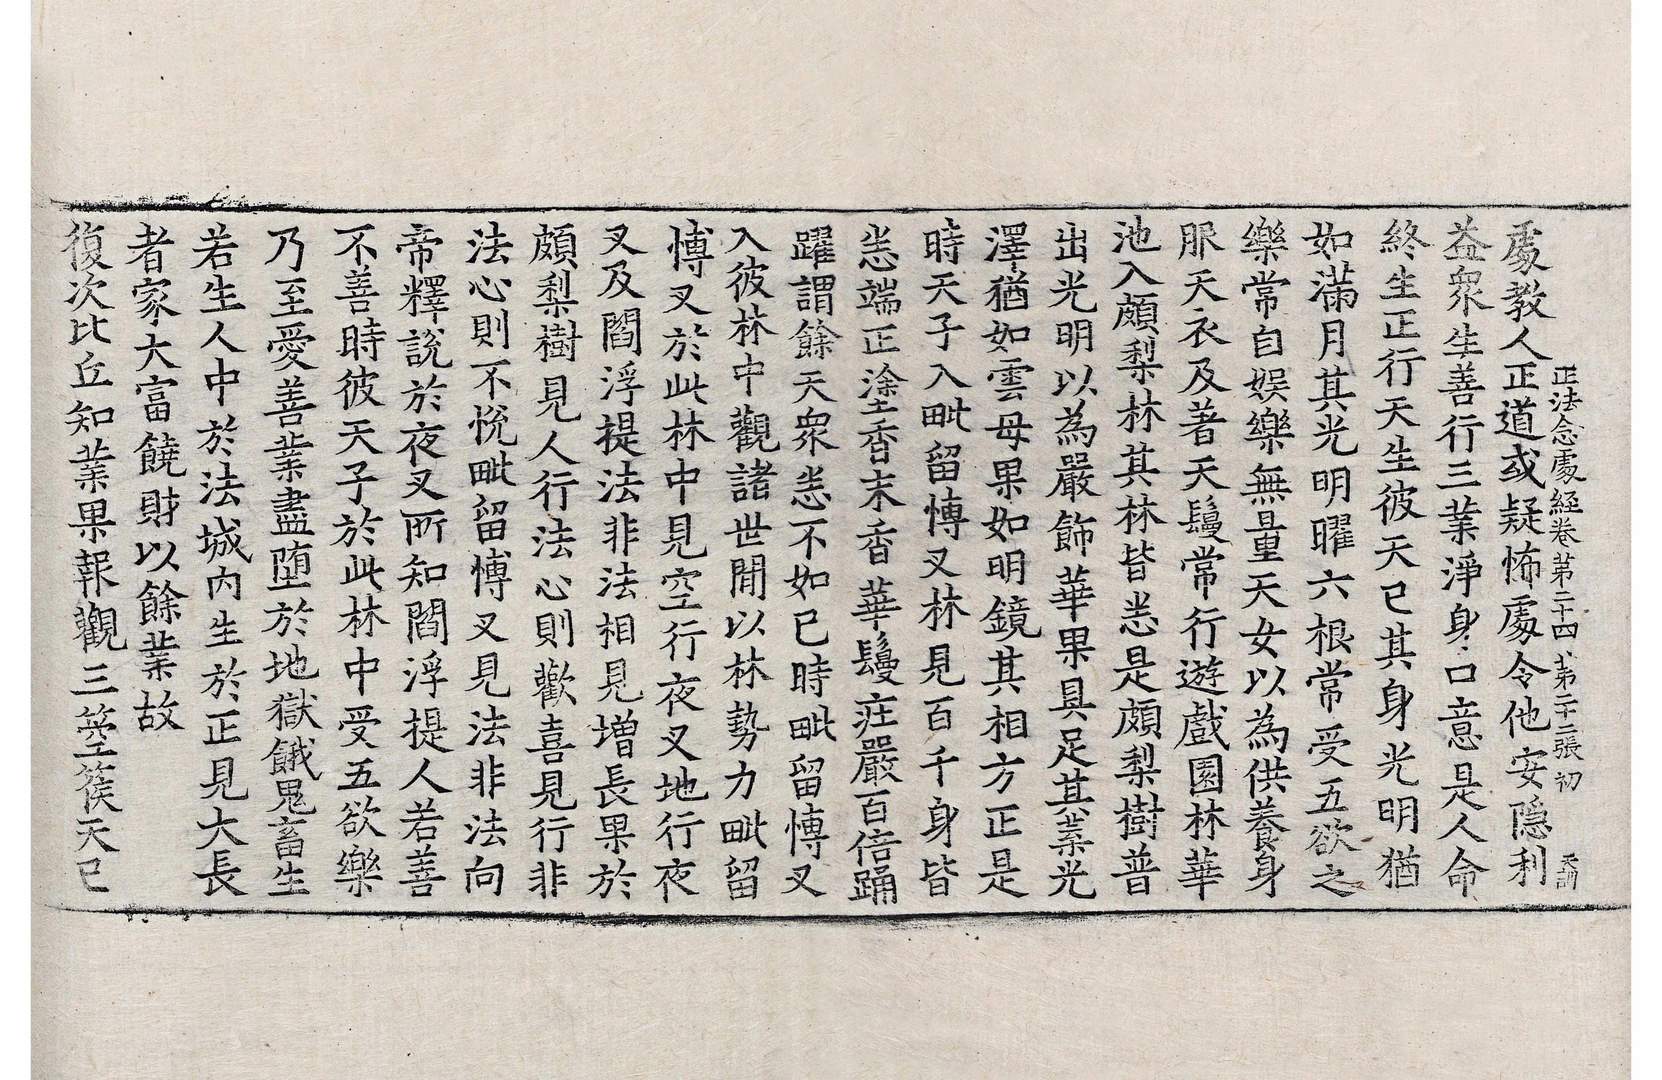 正法念處經卷第二十四 第二十二張 初
處教人正道或疑怖處令他安隱利
益衆生善行三業淨身口意是人命
終生正行天生彼天已其身光明猶
如滿月其光明曜六根常受五欲之
樂常自娛樂無量天女以為供養身
服天衣及著天鬘常行遊戲園林華
池入頗梨林其林皆悉是頗梨樹普
出光明以為嚴飾華果具足其葉光
澤猶如雲母果如明鏡其相方正是
時天子入毗留愽叉林見百千身皆
悉端正塗香末香華鬘莊嚴百倍踊
躍謂餘天衆悉不如已時毗留愽叉
入彼林中觀諸世間以林勢力毗留
愽叉於此林中見空行夜叉地行夜
叉及閻浮提法非法相見增長果於
頗梨樹見人行法心則歡喜見行非
法心則不悅毗留愽叉見法非法向
帝釋說於夜叉所知閻浮提人若善
不善時彼天子於此林中受五欲樂
乃至愛善業盡墮於地獄餓鬼畜生
若生人中於法城內生於正見大長
者家大富饒財以餘業故
復次比丘知業果報觀三箜篌天已